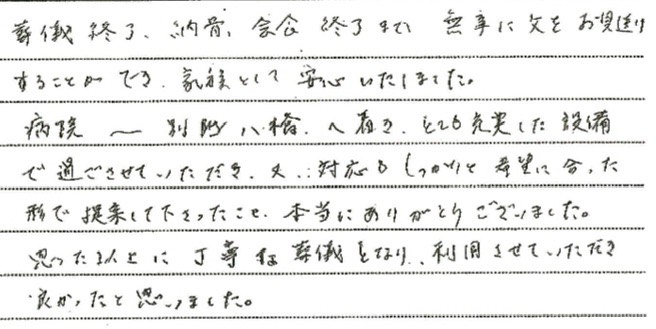 葬儀終了、納骨、会食終了まで無事に父をお見送り
することができ、家族として安心いたしました。
病院〜別府八幡へ着き、とても充実した設備
で過ごさせていただき、又、対応もしっかりと希望に合った
形で提案して下さったこと、本当にありがとうございました。
思った以上に丁寧な葬儀となり、利用させていただき
良かったと思いました。